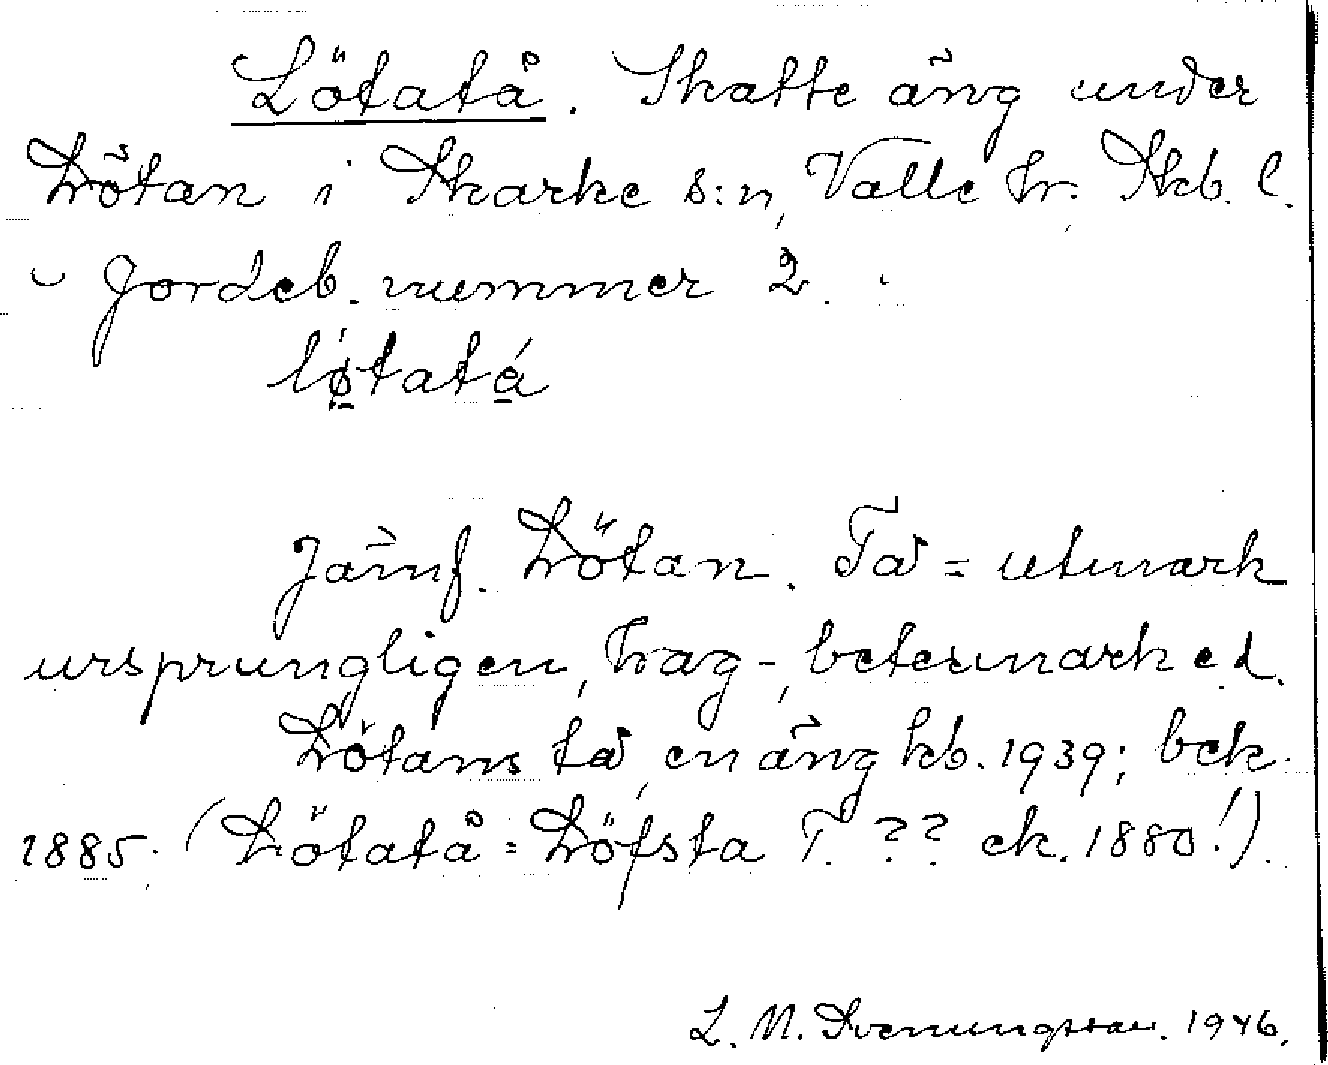 Lötatå. Skatte äng under
Lötan i Skarke s:n, Valle hr. Skb. l.
Jordeb. nummer 2.
lø̱tatá̱
Jämf. Lötan. Tå = utmark
ursprungligen, hag-, betesmark e d.
Lötans tå, en äng kb. 1939; bek.
1885. (Lötatå = Löfsta T. ?? ek. 1880!).
L. M. Svenungsson. 1946.